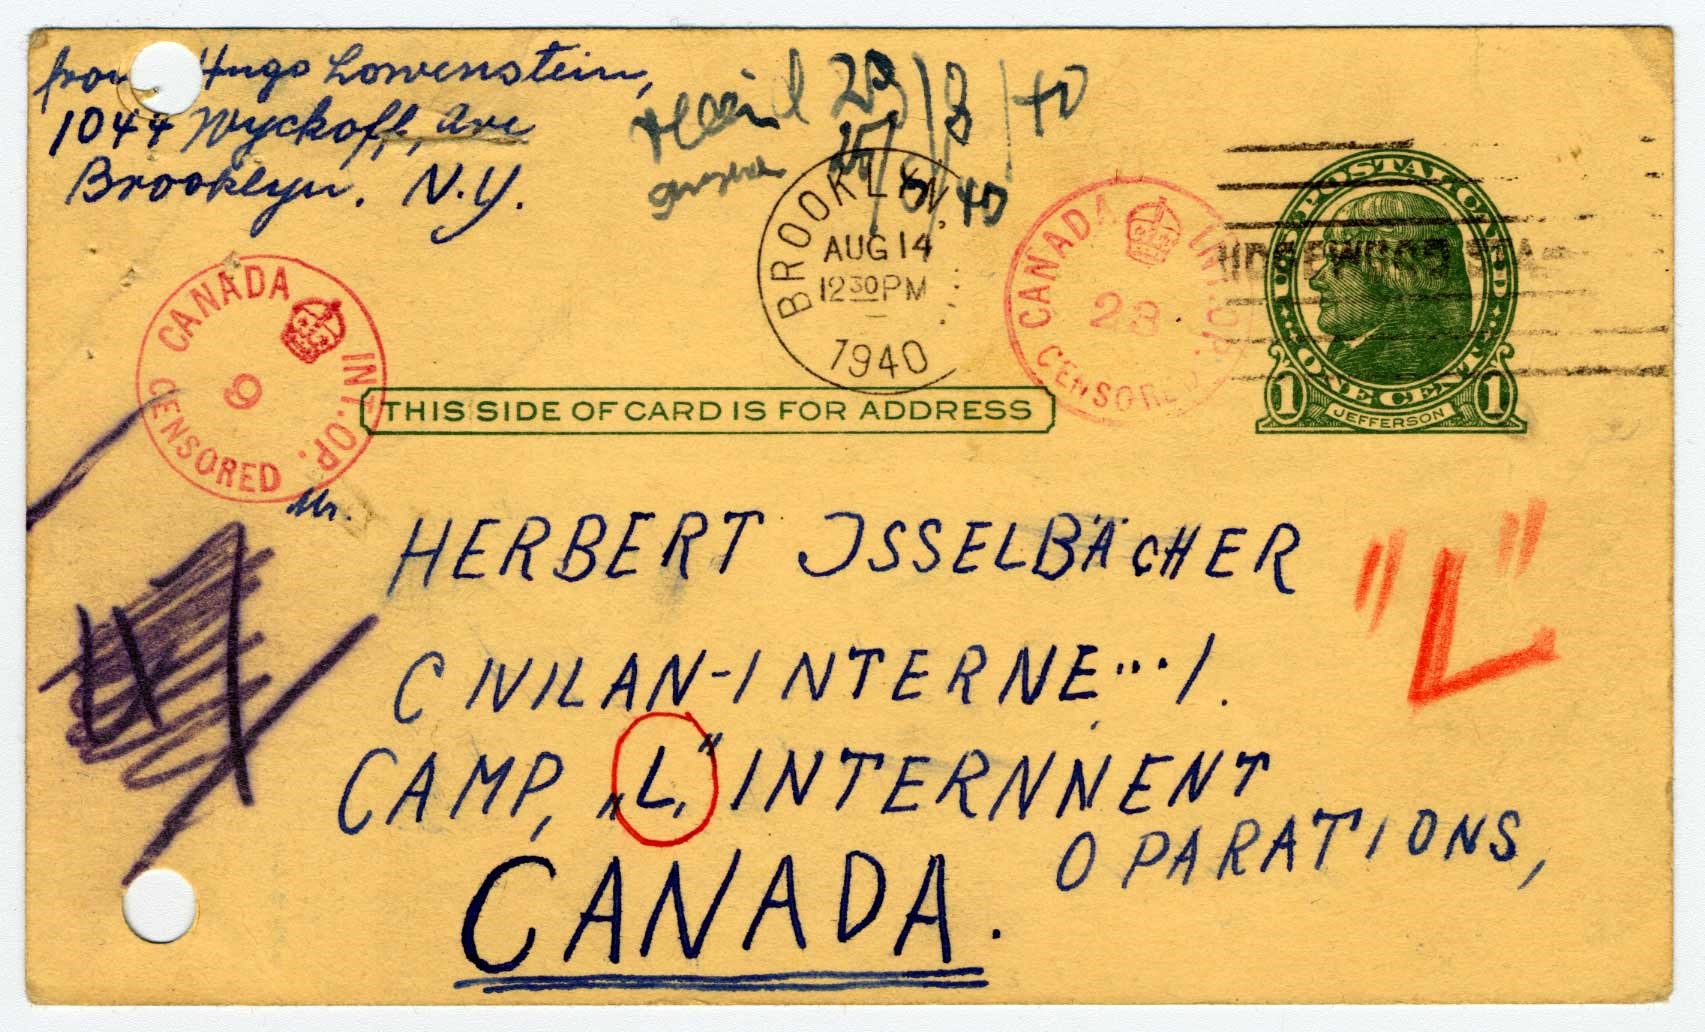 from Hugo Lowenstein,
1044 Wyckoff, Ave
Brooklyn. N.Y.
23/8/40
25/8/40
BROOKLYN,
AUG 14
12 30 PM
1940
CANADA INT. OP.
23
CENSORED
U.S. POSTAL CARD
ONE CENT
1 JEFFERSON 1
CANADA INT. OP.
9
CENSORED
THIS SIDE OF CARD IS FOR ADDRESS
Mr.
HERBERT ISSELBÄCHER
"L"
CIVILAN-INTERNE...1.
CAMP, „L," INTERNNENT
OPARATIONS,
CANADA.